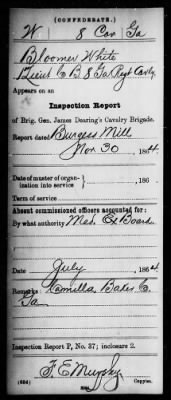 (CONFEDERATE.)
W 8 Cav Ga
Bloomer White
Lieut Co B 8 Ga Regt Cavly
Appears on an
Inspection Report
of Brig. Gen. James Dearing's Cavalry Brigade.
Report dated Burgess Mill
Nov. 30, 1864.
Date of muster or organ-
ization into service , 186
Term of service
Absent commissioned officers accounted for:
By what authority Med. Ex Board
Date July , 1864.
Remarks: Camilla, Baker Co.
Ga
Inspection Report P, No. 37; inclosure 2.
F. E. Murphy
(654) Copyist.